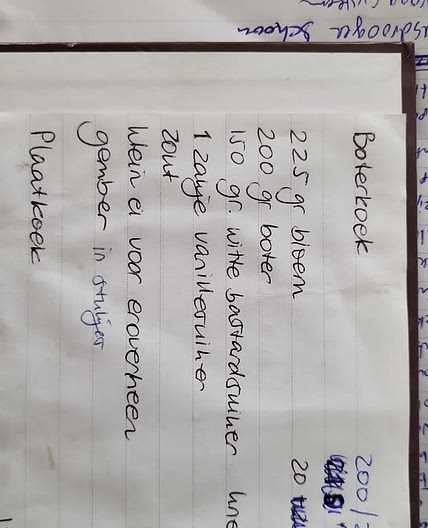 Boterkoek 200/
225 gr bloem 20
200 gr boter
150 gr. witte bastardsuiker
1 zakje vanillesuiker
zout
klein ei voor eroverheen
gember in stukjes
Plaatkoek
schoon